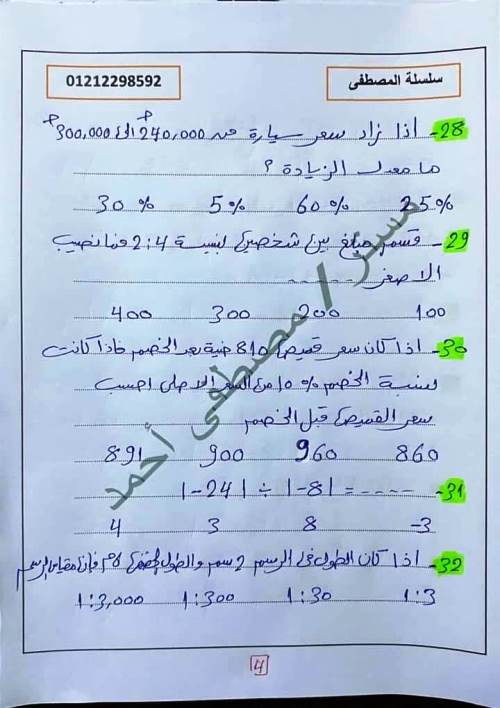 سلسلة المصطفى
01212298592
28- اذا زاد سعر سيارة من 240,000 الى 300,000
ما معدل الزيادة ؟
25% 60% 5% 30%
29- قسم مبلغ بين شخصين بنسبة 2:4 فما نصيب
الاصغر -----
100 200 300 400
30- اذا كان سعر قميص 810 جنية بعد الخصم فاذا كانت
نسبة الخصم 10% من السعر الاصلى احسب
سعر القميص قبل الخصم
860 960 900 891
31- |-24| ÷ |-8| = ----
-3 8 3 4
32- اذا كان الطول فى الرسم 2 سم والطول فإن مقياس الرسم
1:3 1:30 1:300 1:3,000
مستر / مصطفى أحمد
4